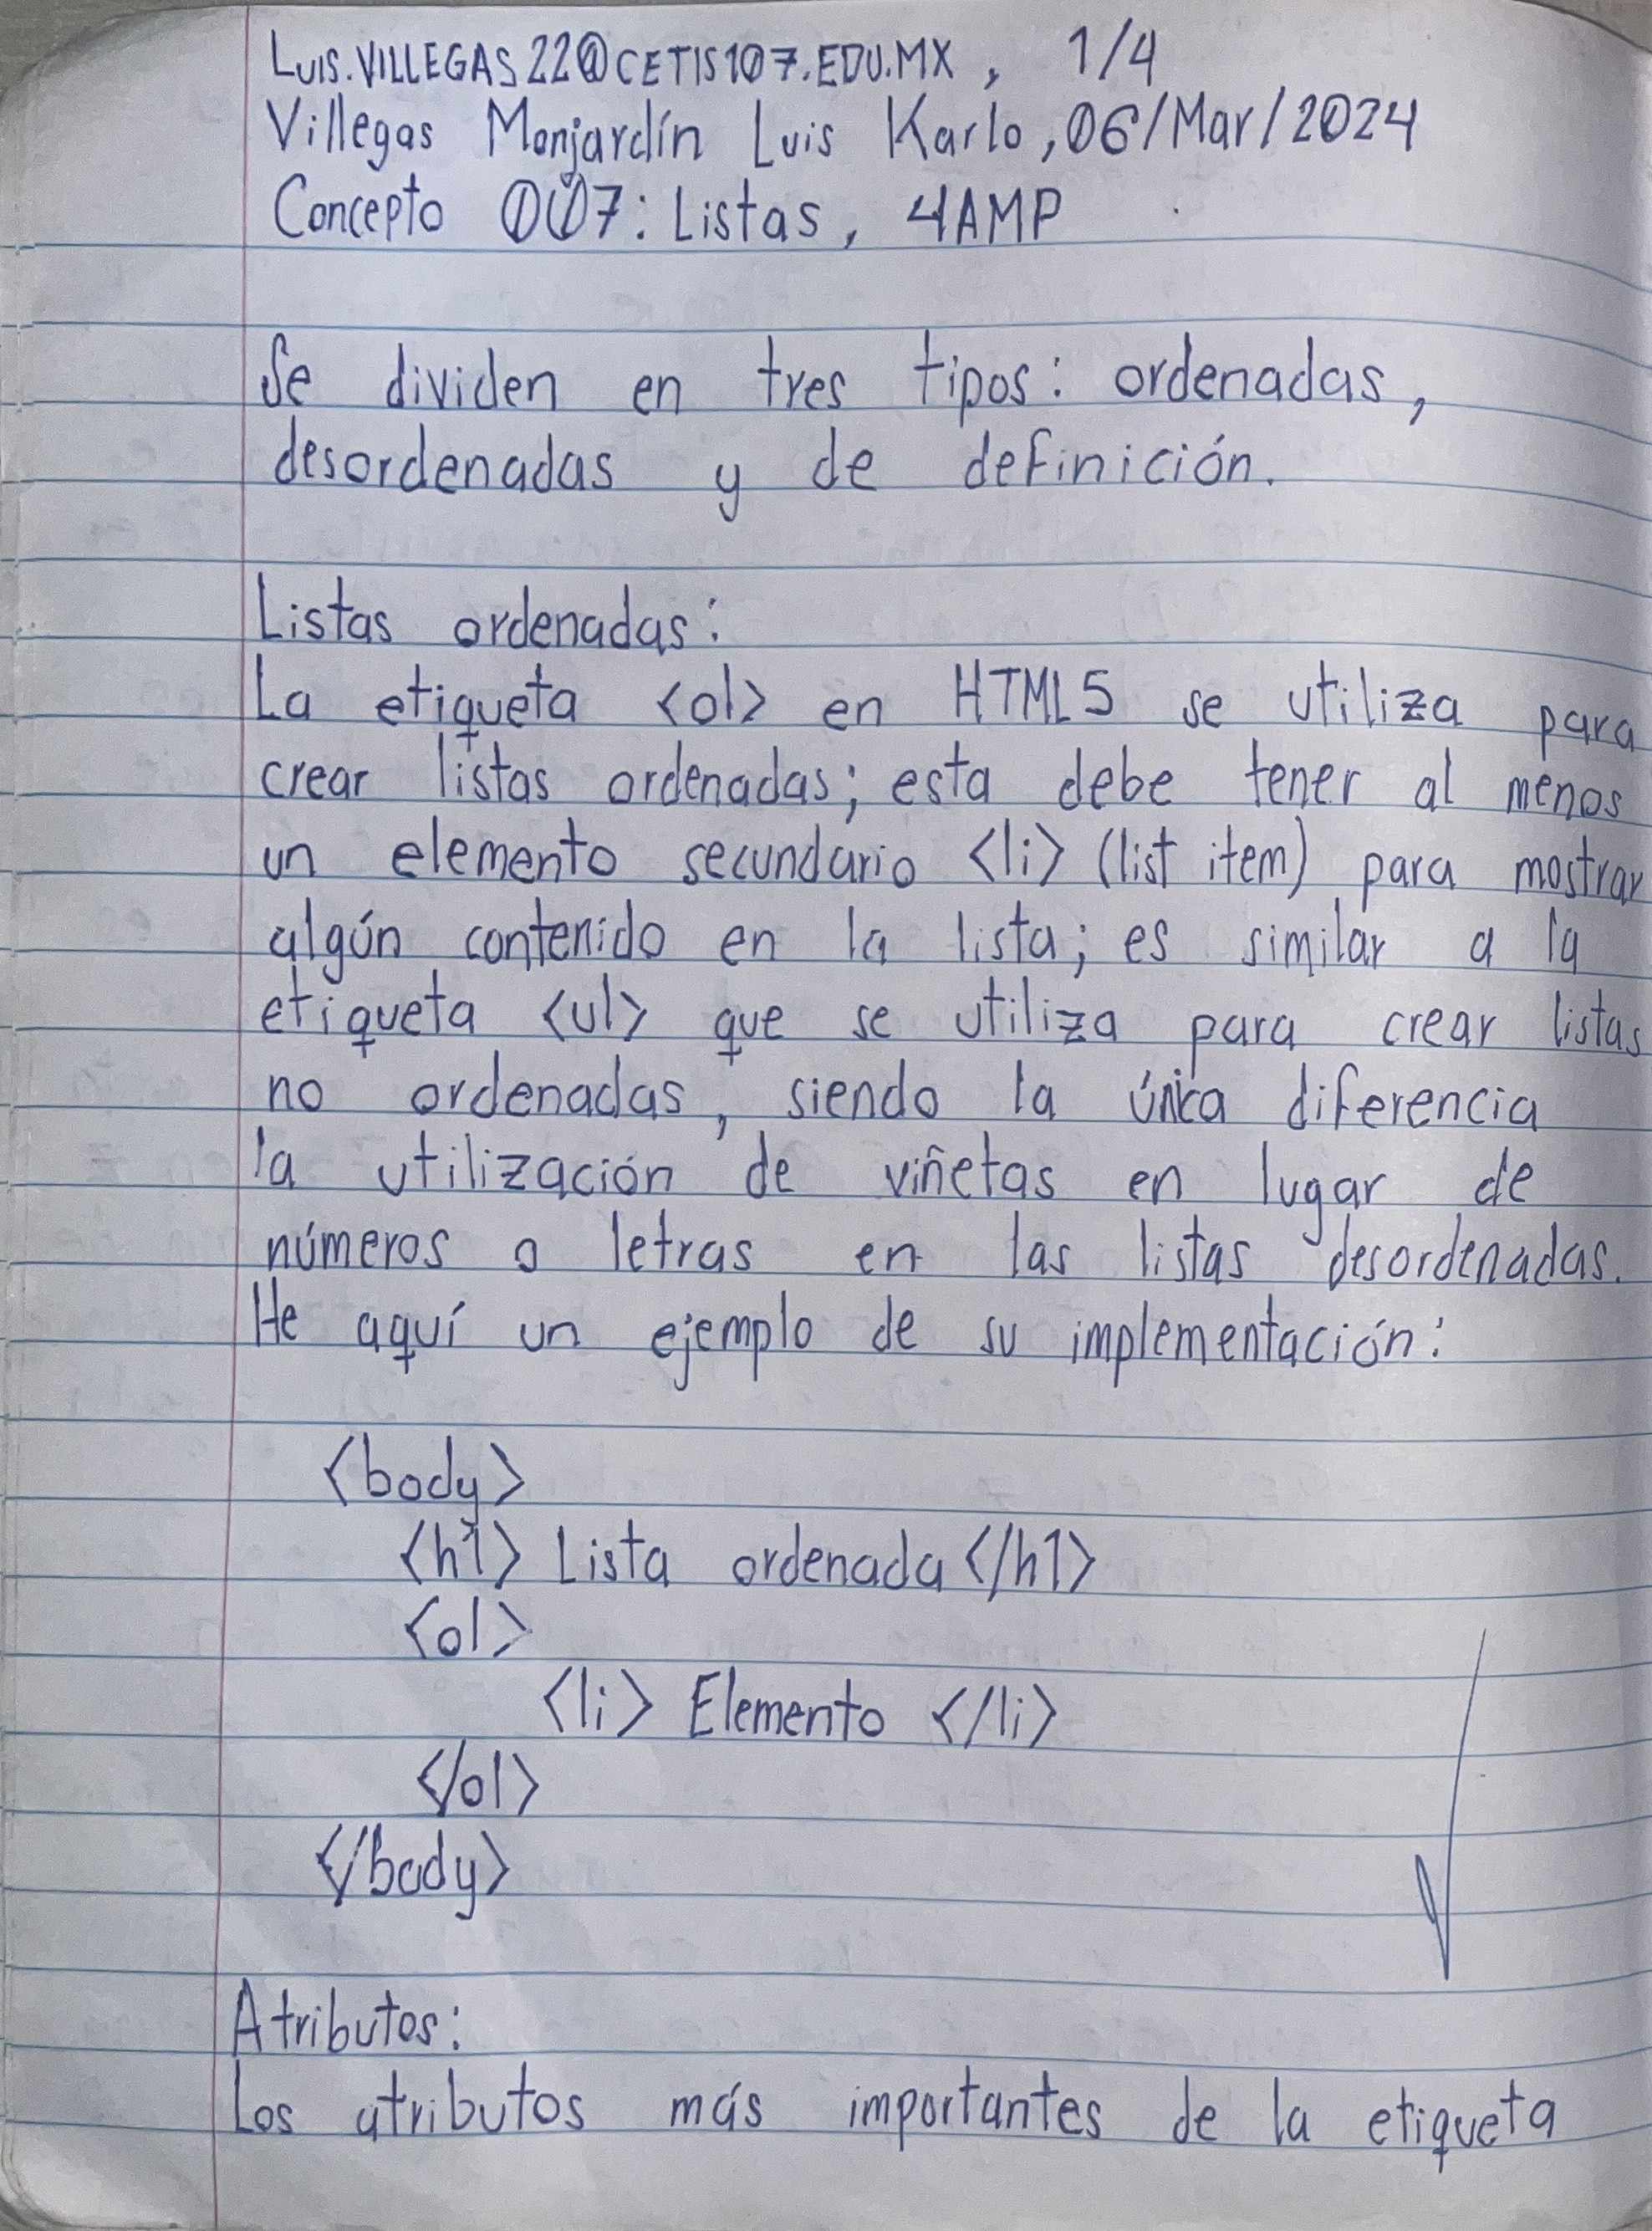 LUIS.VILLEGAS22@CETIS107.EDU.MX, 1/4
Villegas Monjardín Luis Karlo, 06/Mar/2024
Concepto 007: Listas, 4AMP
Se dividen en tres tipos: ordenadas,
desordenadas y de definición.
Listas ordenadas:
La etiqueta <ol> en HTML5 se utiliza para
crear listas ordenadas; esta debe tener al menos
un elemento secundario <li> (list item) para mostrar
algún contenido en la lista; es similar a la
etiqueta <ul> que se utiliza para crear listas
no ordenadas, siendo la única diferencia
la utilización de viñetas en lugar de
números o letras en las listas desordenadas.
He aquí un ejemplo de su implementación:
<body>
<h1> Lista ordenada </h1>
<ol>
<li> Elemento </li>
</ol>
</body>
Atributos:
Los atributos más importantes de la etiqueta